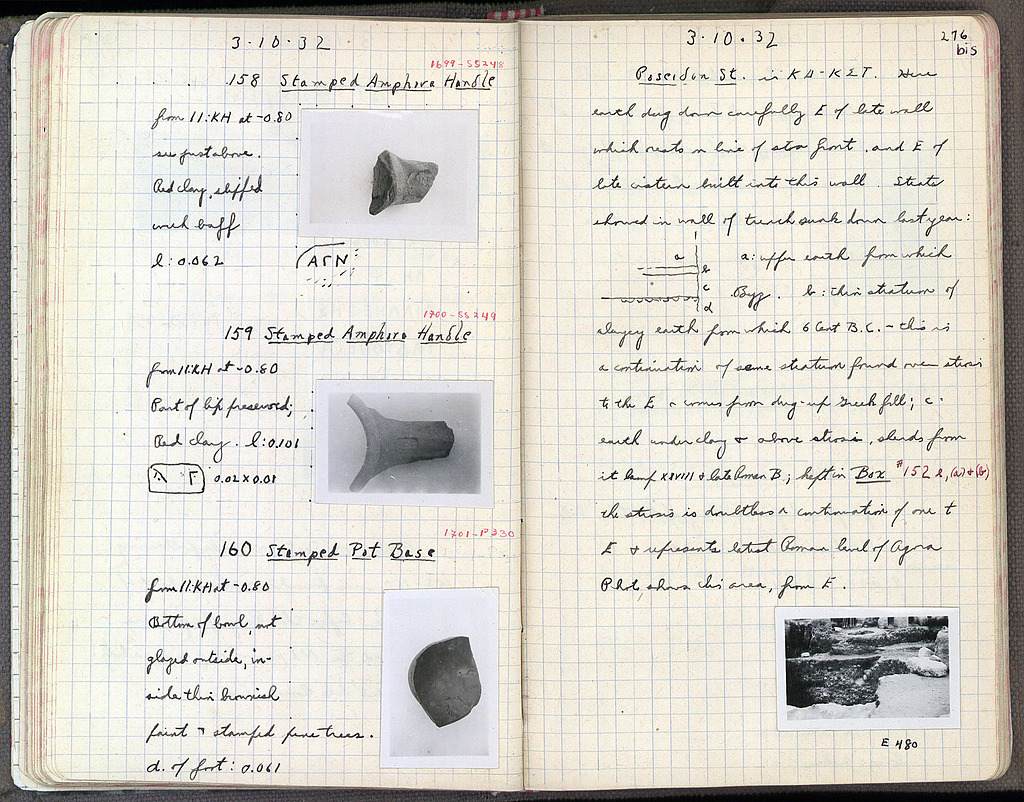 3·10·32
1699-SS248
158 Stamped Amphora Handle
from 11:KH at -0.80
see just above.
Red clay, slipped
with buff
l: 0.062
ΑΓΝ
1700-SS249
159 Stamped Amphora Handle
from 11:KH at -0.80
Part of lip preserved;
Red clay. l: 0.101
Γ 0.02 x 0.01
1701-P330
160 Stamped Pot Base
from 11:KH at -0.80
Bottom of bowl, not
glazed outside, in-
side thin brownish
paint + stamped palmettes.
d. of foot: 0.061
3·10·32
276
bis
Poseidon St. in ΚΔ-ΚΣΤ. Here
earth dug down carefully E of late wall
which rests on line of stoa front, and E of
late cistern built into this wall. Strata
showed in wall of trench sunk down last year:
a
b
c
d
a: upper earth from which
Byz. b: thin stratum of
clayey earth from which 6 Cent B.C. - this is
a continuation of same stratum found over strosis
to the E + comes from dug-up Greek fill; c.
earth under clay + above strosis, sherds from
it lamp XXVIII + late Roman B; kept in Box #152 (a) + (b)
the strosis is doubtless a continuation of one to
E + represents latest Roman level of Agora
Phot. shows this area, from E.
E 480